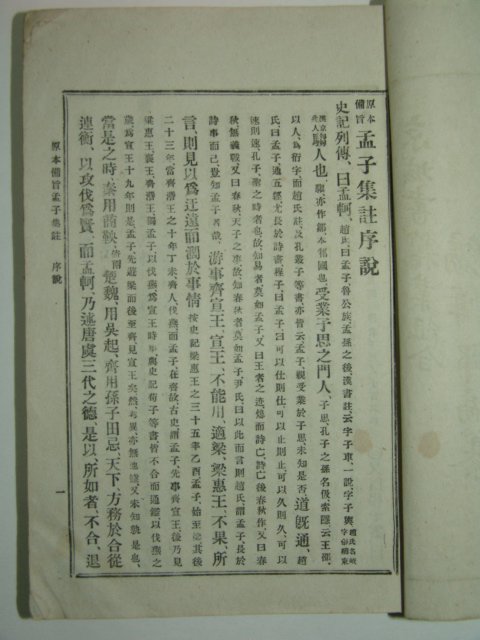 原本備旨 孟子集註序說
史記列傳、曰孟軻、趙氏曰孟子魯公族孟孫之後、漢書註云字子車、一說字子輿 趙氏名岐字邠卿東
漢京兆人 人也、騶亦作鄒本邾國也 受業子思之門人、子思、孔子之孫名伋索隱云王劭、
以人、爲衍字而趙氏註及孔叢子等書亦皆云孟子、親受業於子思、未知是否 道旣通、趙
氏曰孟子通五經尤長於詩書程子曰孟子曰可以仕則仕可以止則止可以久則久、可以
速則速孔子、聖之時者也故知易者莫如孟子又曰王者之迹熄而詩亡詩亡後春秋作又曰春
秋無義戰又曰春秋、天子之事故、知春秋者莫如孟子、尹氏曰以此而言則趙氏、謂孟子、長於
詩書而已、豈知孟子者哉、 游事齊宣王、宣王、不能用、適梁、梁惠王、不果、所
言、則見以爲迂遠而闊於事情 按史記梁惠王之三十五年乙酉孟子、始至梁其後
二十三年當齊湣王之十年丁未、齊人伐燕而孟子在齊故古史謂孟子、先事齊宣王後乃見
梁惠王襄王齊湣王獨孟子以伐燕爲宣王時事、與史記荀子等書皆不合而通鑑以伐燕之
歲爲宣王十九年則是孟子先遊梁而後至齊見宣王矣然考異亦無他據又未知孰是也
當是之時、秦用商鞅、楚魏、用吳起、齊用孫子田忌、天下、方務於合從
連衡、以攻伐爲賢、而孟軻、乃述唐虞三代之德、是以、所如者、不合、退
原本備旨孟子集註 序說
一